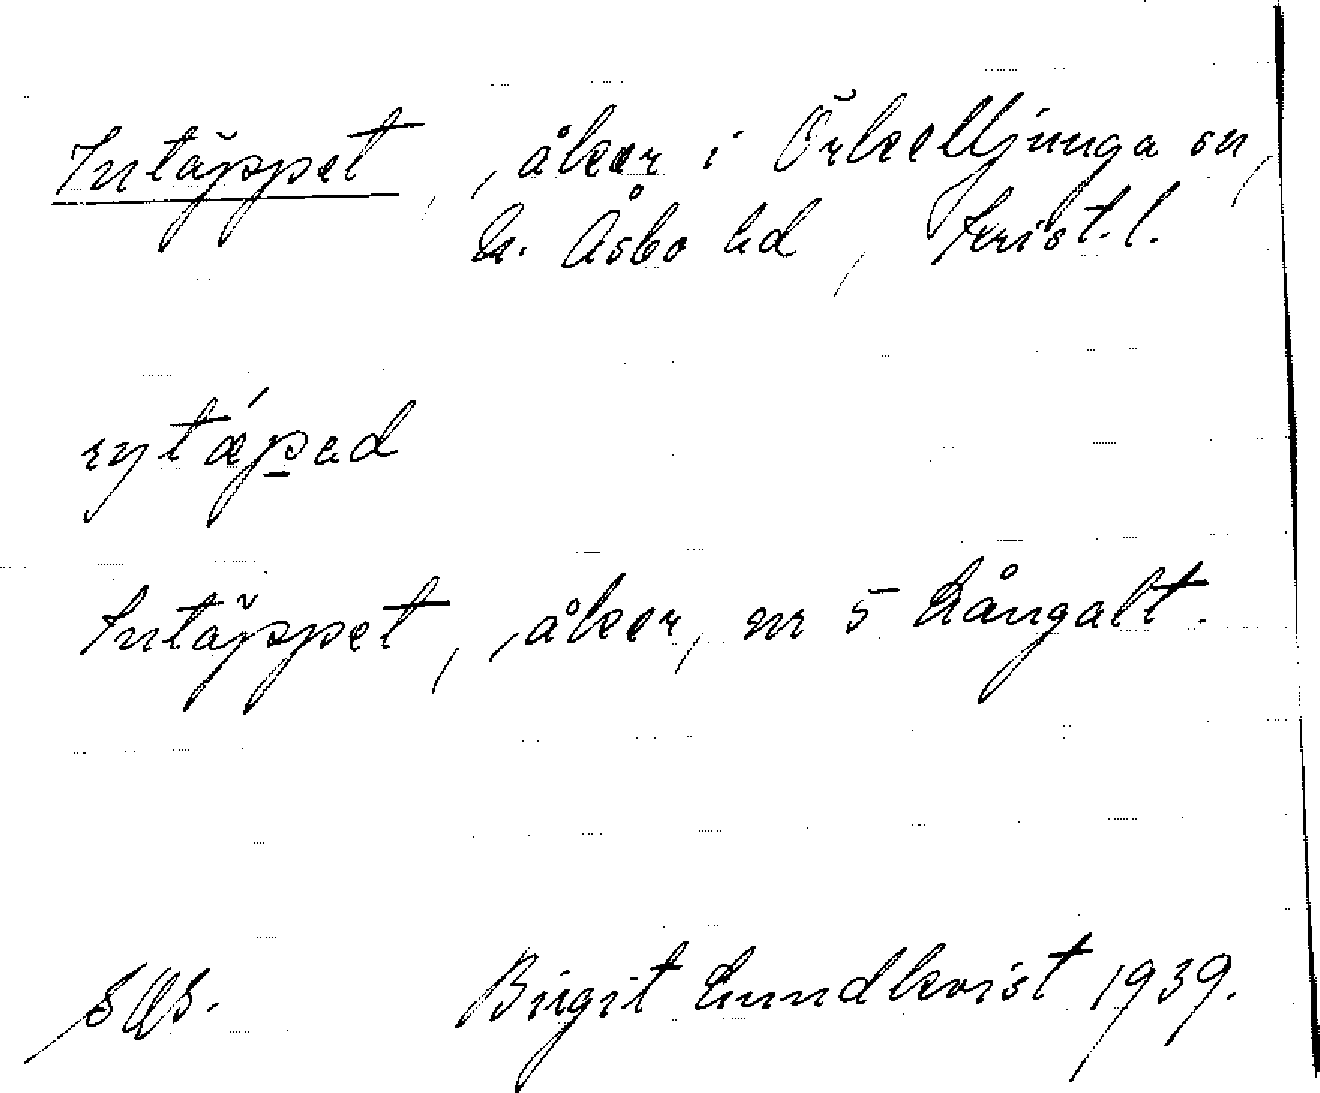 Intäppet, åker i Örkelljunga sn,
N. Åsbo hd, Krist. l.
Intäppet, åker, nr 5 Långalt.
Birgit Lundkvist 1939.